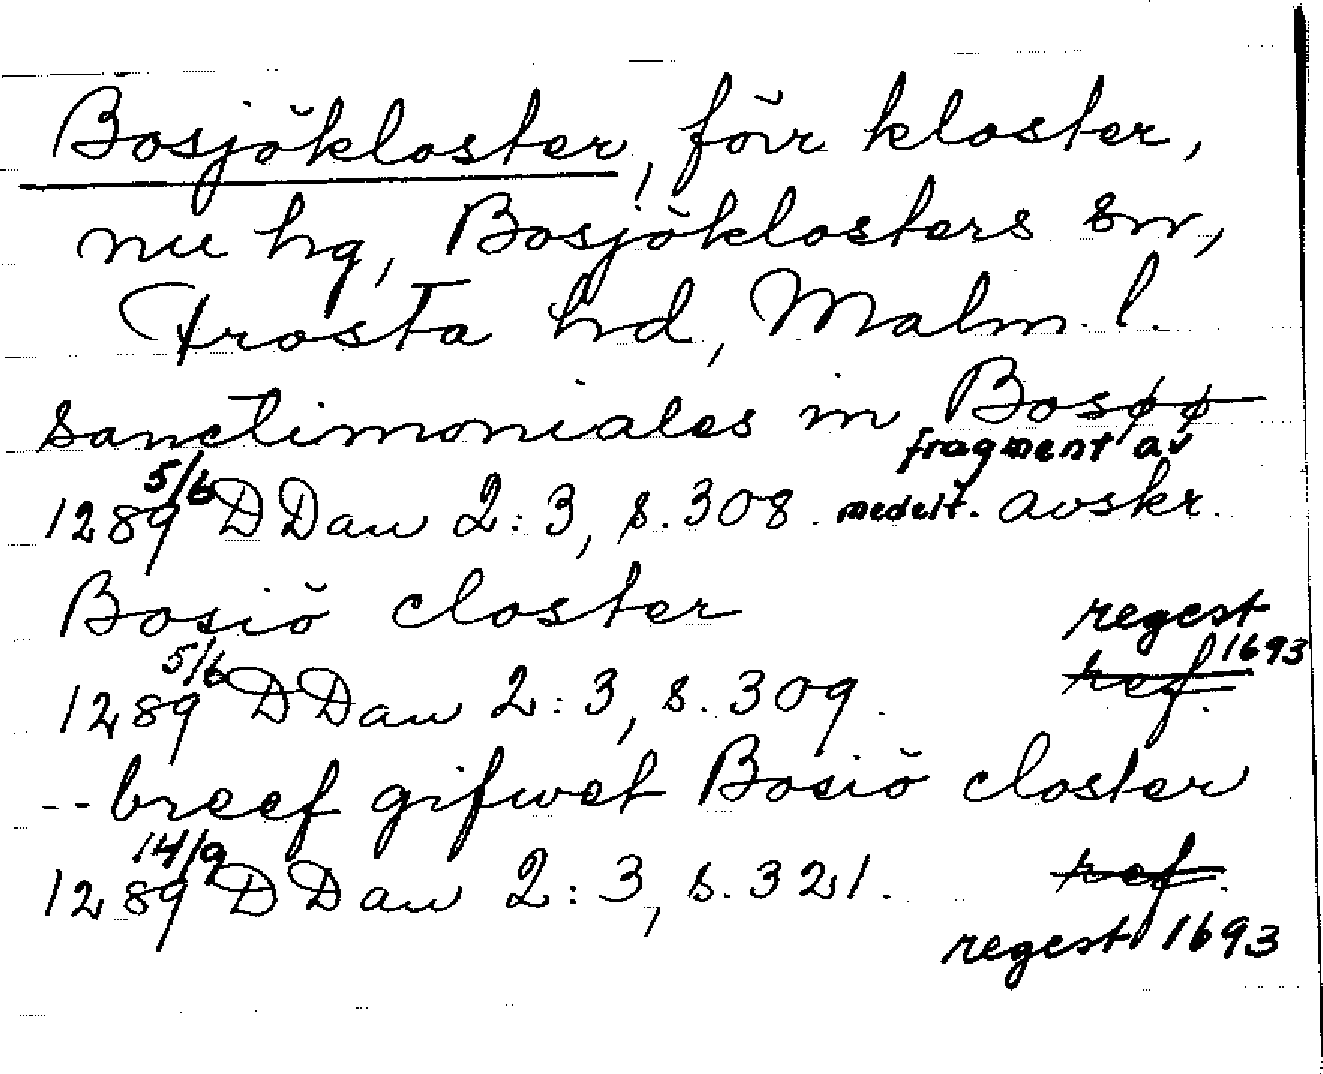 Bosjökloster, förr kloster,
nu hg, Bosjöklosters sn,
Frosta hd, Malm. l.
sanctimoniales in Bosøø
fragment av
1289 5/6 DDan 2:3, s. 308. medelt. avskr.
Bosiö closter
regest 1693
1289 5/6 DDan 2:3, s. 309. ref.
-- breef gifwet Bosiö closter
1289 14/9 DDan 2:3, s. 321. ref.
regest 1693